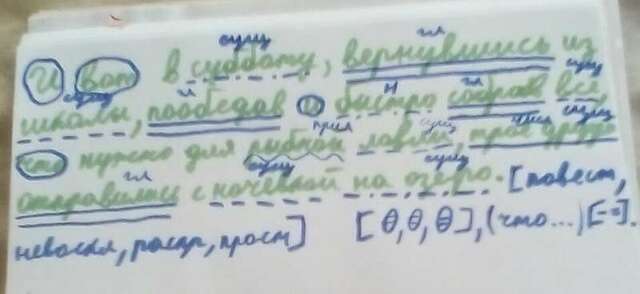 сущ гл
И вот в субботу, вернувшись из
сущ н гл сущ
школы, пообедав и быстро собрав все,
прил сущ числ сущ
что нужно для рыбной ловли, трое друзе
гл сущ сущ
отправились с ночевкой на озеро. [повест,
невоскл, распр, прост] [θ, θ, θ], (что...) [- =].